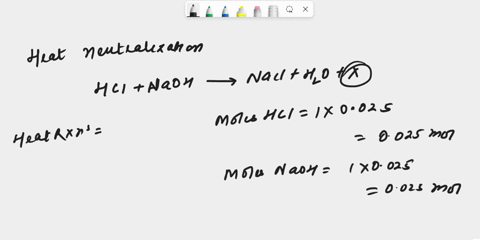 Heat neutralization
HCl + NaOH → NaCl + H2O + x
Moles HCl = 1 x 0.025
= 0.025 mol
Heat Rxn's =
Moles NaOH = 1 x 0.025
= 0.025 mol